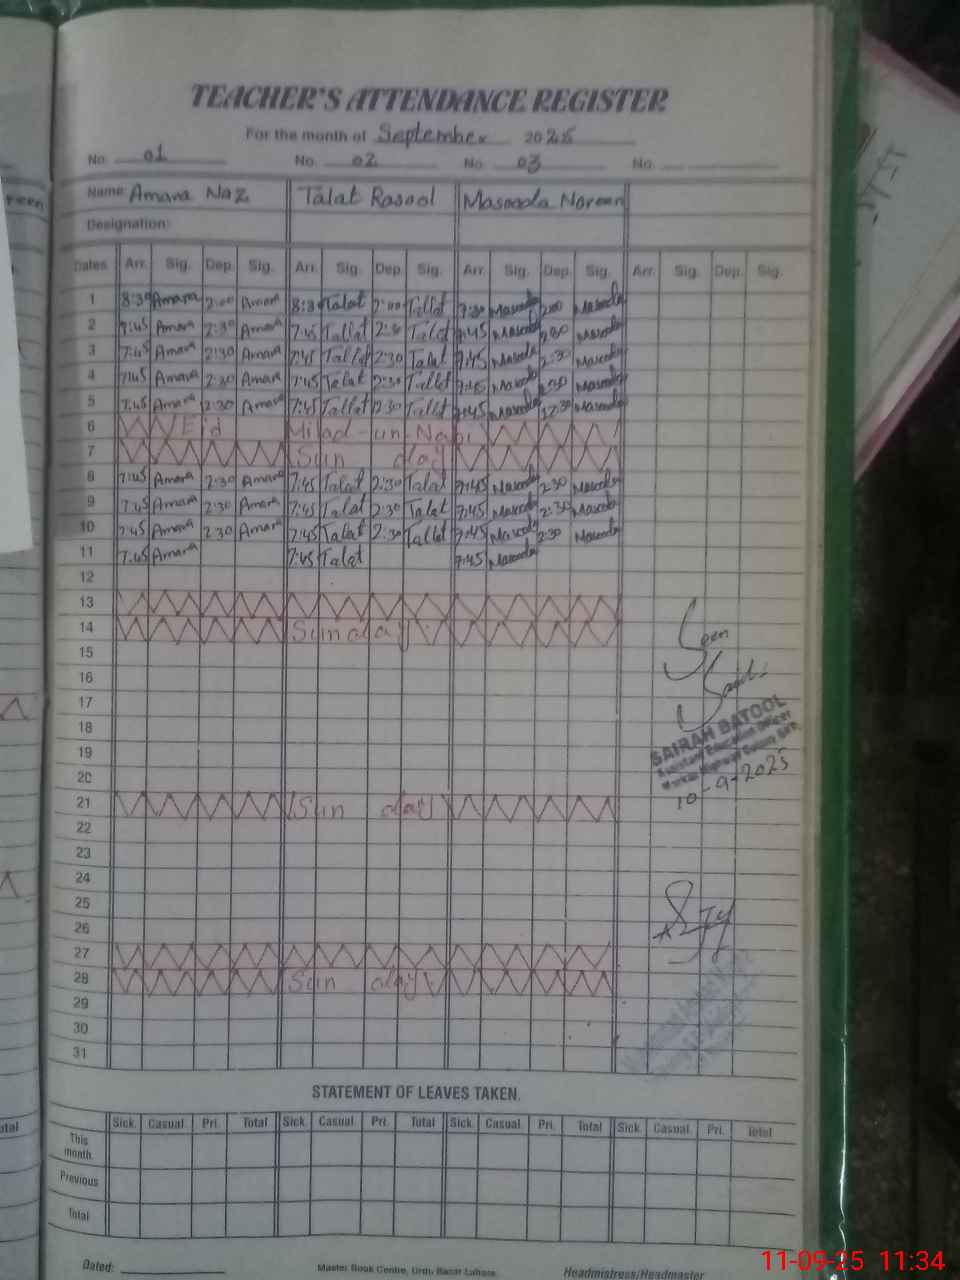 TEACHER'S ATTENDANCE REGISTER
For the month of September 2025
No. 01 No. 02 No. 03 No.
Name: Amara Naz Talat Rasool Masooda Noreen
Designation:
Dates Arr. Sig. Dep. Sig. Arr. Sig. Dep. Sig. Arr. Sig. Dep. Sig. Arr. Sig. Dep. Sig.
1 8:30 Amara 2:00 Amara 8:30 Talat 2:00 Tallat 7:30 Masooda 2:00 Masooda
2 7:45 Amara 2:30 Amara 7:45 Tallat 2:30 Talat 7:45 Masooda 2:30 Masooda
3 7:45 Amara 2:30 Amara 7:45 Tallat 2:30 Talat 7:45 Masooda 2:30 Masooda
4 7:45 Amara 2:30 Amara 7:45 Talat 2:30 Tallat 7:45 Masooda 2:30 Masooda
5 7:45 Amara 2:30 Amara 7:45 Tallat 2:30 Tallat 7:45 Masooda 12:30 Masooda
6 Eid Milad-un-Nabi
7 Sun day
8 7:45 Amara 2:30 Amara 7:45 Talat 2:30 Talat 7:45 Masooda 2:30 Masooda
9 7:45 Amara 2:30 Amara 7:45 Talat 2:30 Talat 7:45 Masooda 2:30 Masooda
10 7:45 Amara 2:30 Amara 7:45 Talat 2:30 Tallat 7:45 Masooda 2:30 Masooda
11 7:45 Amara 7:45 Talat 7:45 Masooda
12
13
14 Sunday
15
16
17
18
19
20
21 Sun day
22
23
24
25
26
27
28 Sun day
29
30
31
Seen
SAIRAH BATOOL
Assistant Education Officer
10-9-2025
STATEMENT OF LEAVES TAKEN.
Sick. Casual. Pri. Total Sick. Casual. Pri. Total Sick. Casual. Pri. Total Sick. Casual. Pri. Total
This month.
Previous
Total
Dated:
Master Book Centre, Urdu Bazar Lahore.
Headmistress/Headmaster
11-09-25 11:34